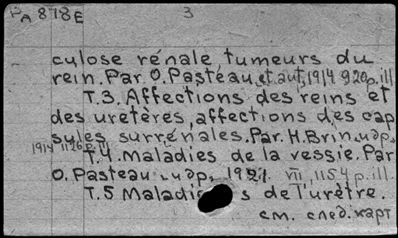 РА 878Е 3
culose rénale, tumeurs du
rein. Par O. Pasteau, et aut, 1914 920p. ill
T.3. Affections des reins et
des uretères, affections des cap
sules surrénales. Par. H. Brin. и др.
1914 1126 p. ill
T.4. Maladies de la vessie. Par
O. Pasteau и др. 1921. VII, 1154 p. ill.
T.5 Maladies de l'urètre.
см. след. карт